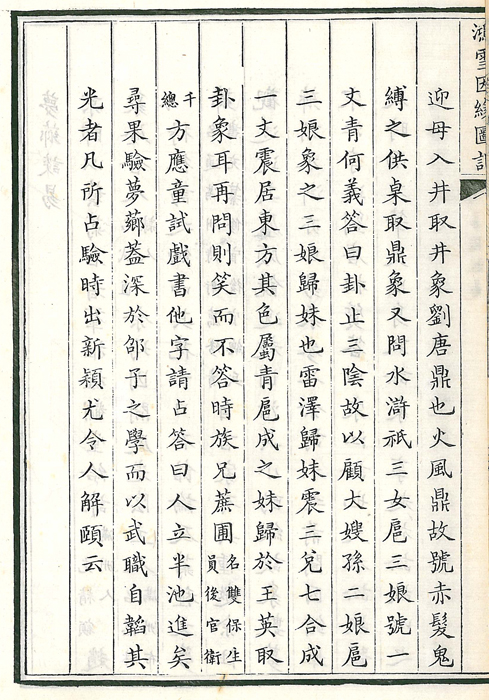 鴻雪因緣圖記
迎母入井取井象劉唐鼎也火風鼎故號赤髮鬼
縛之供桌取鼎象又問水滸祇三女扈三娘號一
丈青何義答曰卦止三陰故以顧大嫂孫二娘扈
三娘象之三娘歸妹也雷澤歸妹震三兌七合成
丈震居東方其色屬青扈成之妹歸於王英取
卦象耳再問則笑而不答時族兄蕉圃名雙保生員後官衛
千總方應童試戲書他字請占答曰人立半池進矣
尋果驗夢薌蓋深於邵子之學而以武職自韜其
光者凡所占驗時出新穎尤令人解頤云